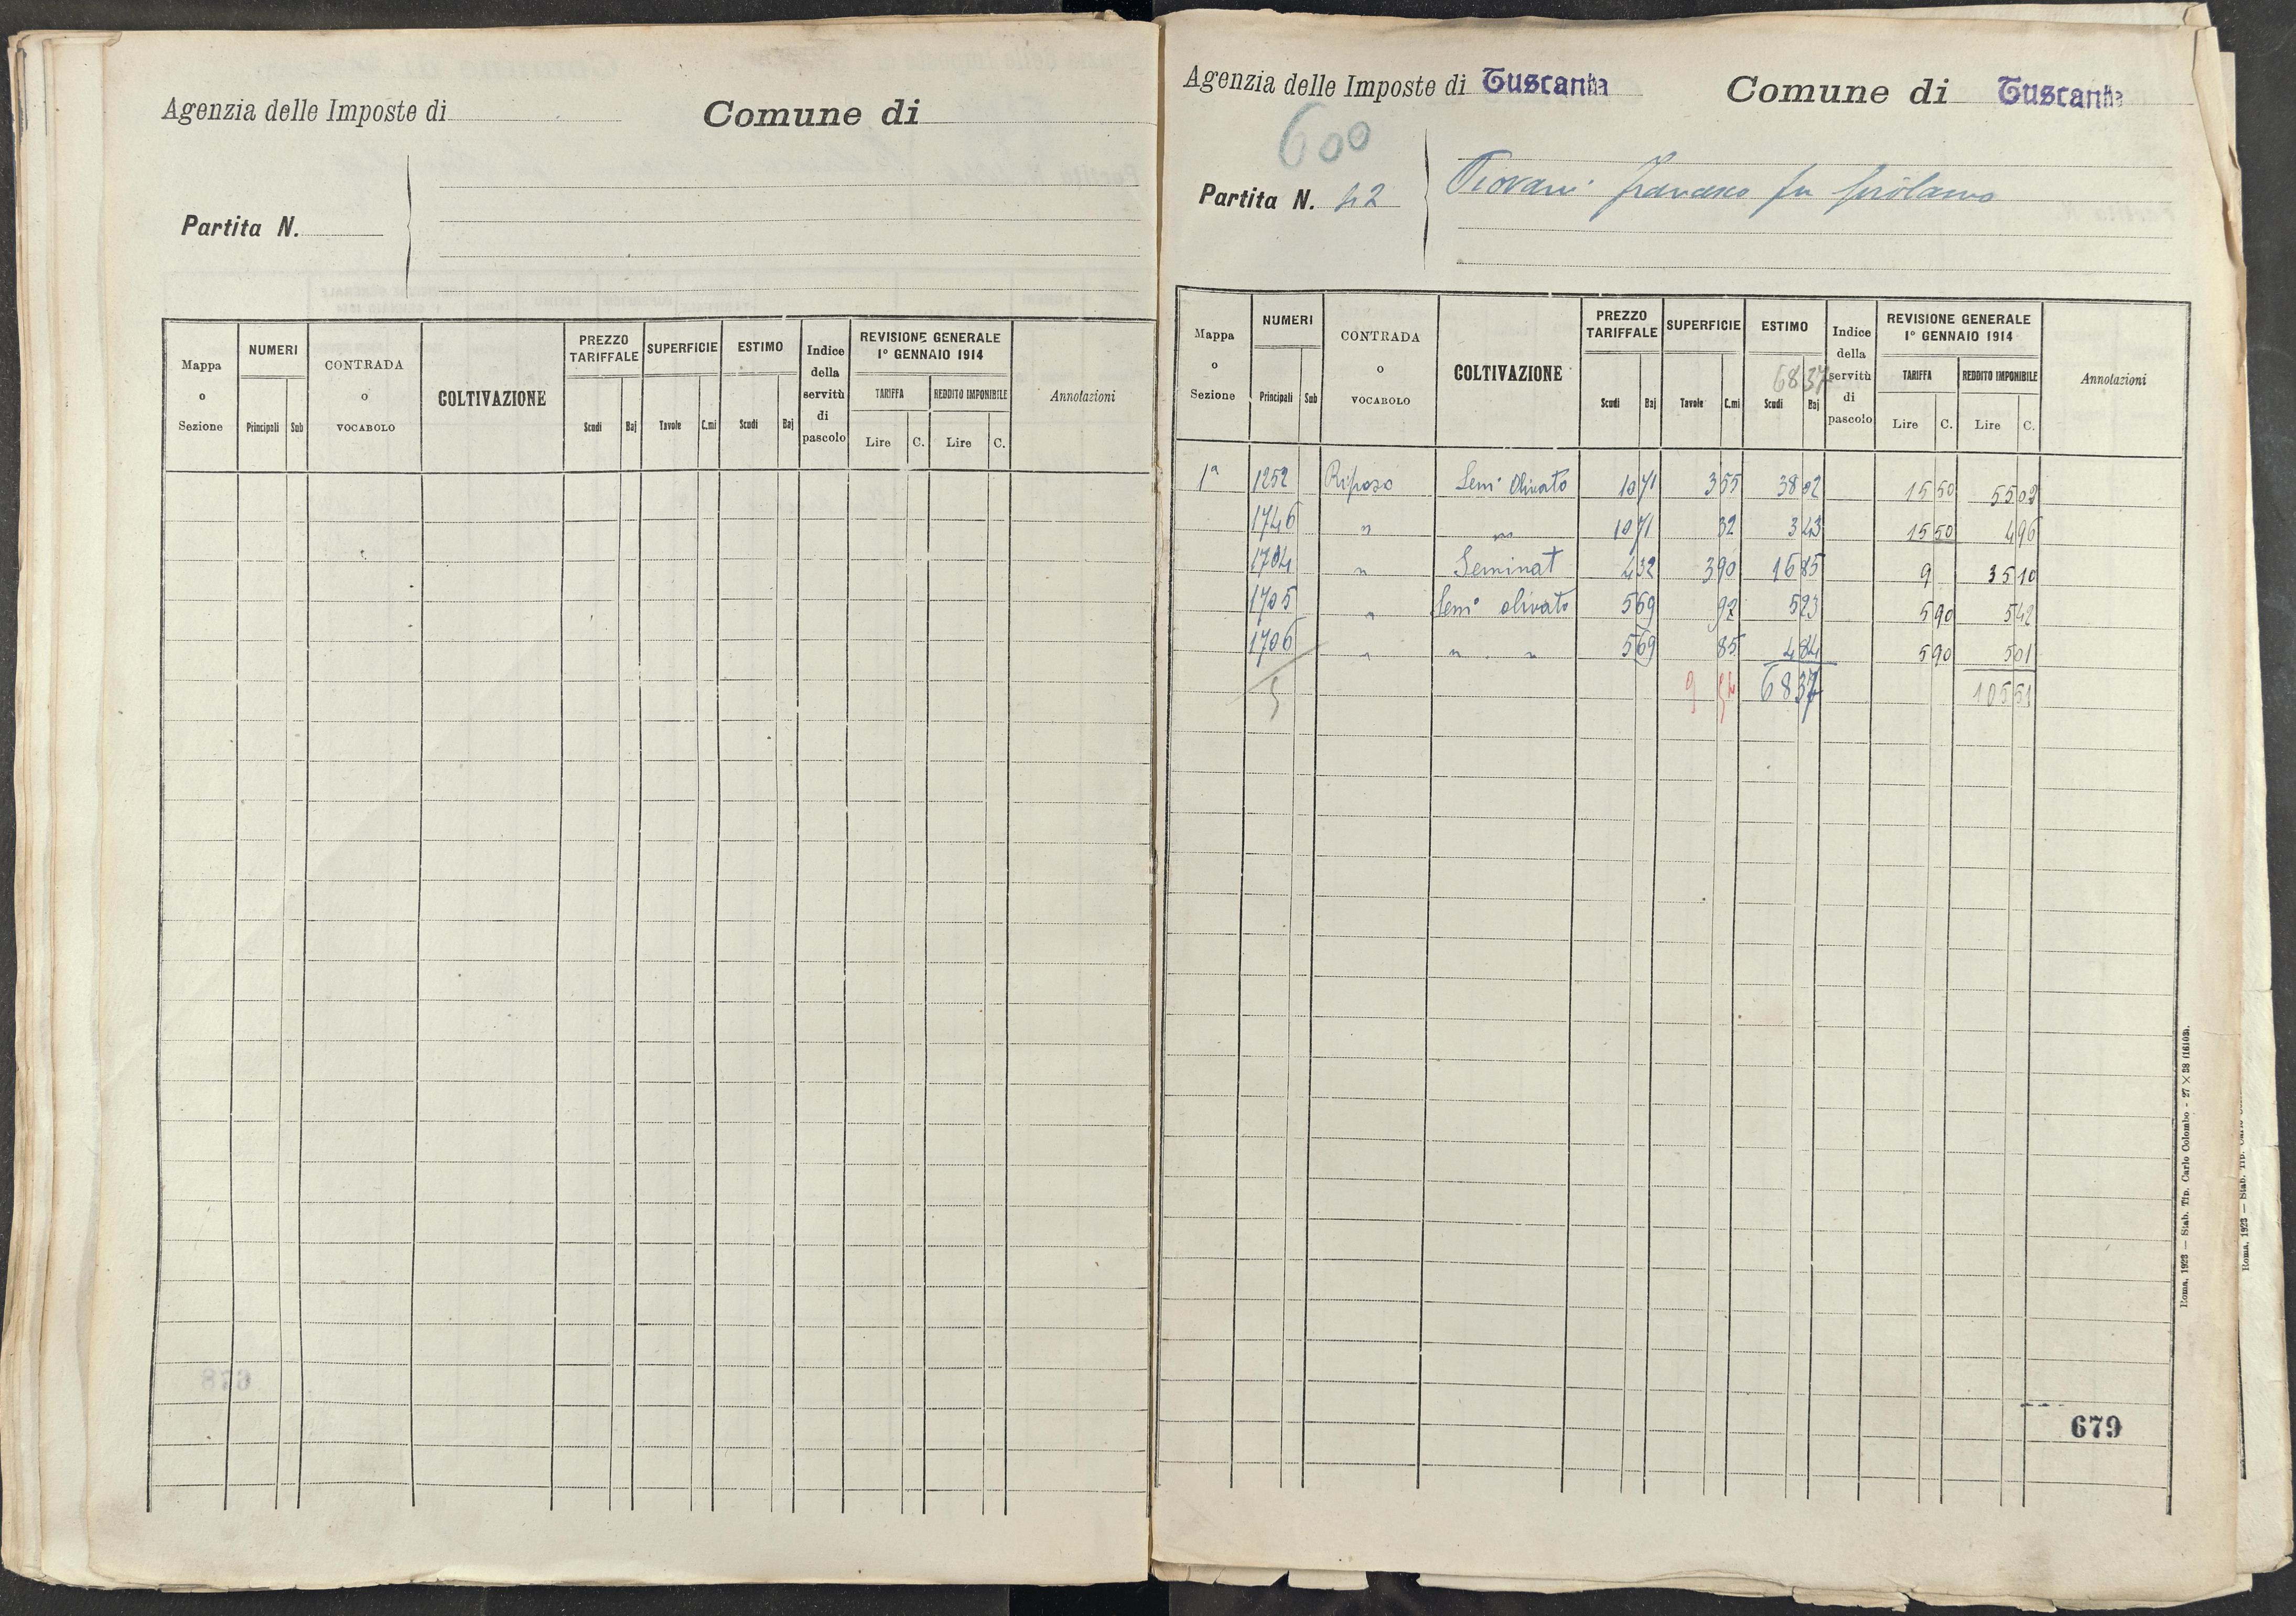 Agenzia delle Imposte di
Comune di
Partita N.
Mappa o Sezione
NUMERI
Principali Sub
CONTRADA o VOCABOLO
COLTIVAZIONE
PREZZO TARIFFALE
Scudi Baj
SUPERFICIE
Tavole C.mi
ESTIMO
Scudi Baj
Indice della servitù di pascolo
REVISIONE GENERALE
1º GENNAIO 1914
TARIFFA
Lire C.
REDDITO IMPONIBILE
Lire C.
Annotazioni
678
Agenzia delle Imposte di Tuscania
Comune di Tuscania
600
Partita N. 42
Piovani Francesco fu Girolamo
Mappa o Sezione
NUMERI
Principali Sub
CONTRADA o VOCABOLO
COLTIVAZIONE
PREZZO TARIFFALE
Scudi Baj
SUPERFICIE
Tavole C.mi
ESTIMO
6837
Scudi Baj
Indice della servitù di pascolo
REVISIONE GENERALE
1º GENNAIO 1914
TARIFFA
Lire C.
REDDITO IMPONIBILE
Lire C.
Annotazioni
1ª 1252 Riposo Semi Olivato 10 71 3 55 38 02 15 50 55 02
1746 " " 10 71 32 3 43 15 50 4 96
1704 " Seminat 4 32 3 90 16 85 9 35 10
1705 " Semi olivato 5 69 92 5 23 5 90 5 42
1706 " " " 5 69 85 4 84 5 90 5 01
5 9 54 68 37 105 51
679
Roma, 1923 — Stab. Tip. Carlo Colombo - 27 × 38 (16103).
Roma, 1923 — Stab. Tip.